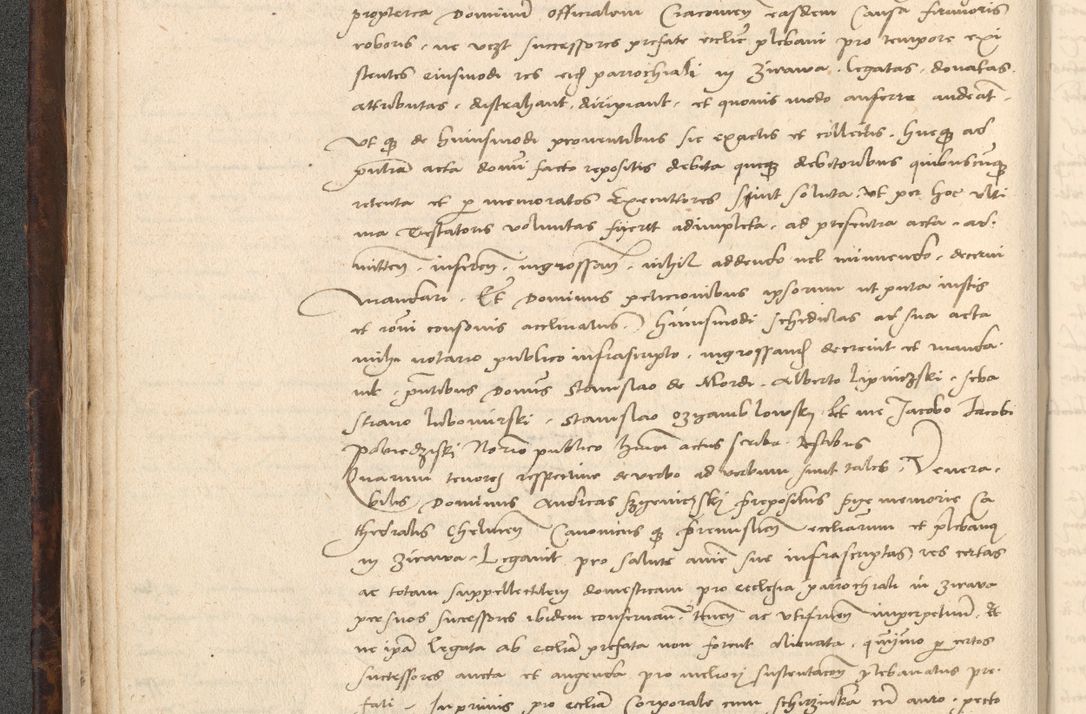 propterea Dominum officialem Cracovien easdem causa firmioris
roboris, ne vezt successores prefate ecclie plebani pro tempore exi
stentes eiusmodi res eid parrochiali in Zirawa legatas, donatas,
attributas, distrahant, diripiant, et quovis modo auferre audeat,
Ut q de huiusmodi proventibus sic exactis et collectis, hucq ad
pntia acta domi facto repositis debita queq debitoribus quibuscunq
retenta et p memoratos Executores sint soluta, Ut per hoc ulti
ma Testatoris voluntas fueret adimpleta, ad presentia acta, ad
mitten, inseren, ingrossan, nihil addendo vel minuendo, decerni
mandari. Et Dominus peticionibus ipsorum ut puta iustis
et roni consonis acclinatus, huiusmodi schedulas ad sua acta
mihi notario publico infrascripto, ingrossand decrevit et manda
vit, pntibus Domis Stanislao de Mordi, Alberto Lipniczski, Seba
stiano Lubomirski, Stanislao Ozyamblowski Et me Jacobo Jacobi
Poviedziski Norio publico huiq actus scriba, testibus
Quarum tenores respective de verbo ad verbum sunt tales, Venera
bilis Dominus Andreas prepositus pię memorie Ca
thedralis Chelmen Canonicus q Premislien eccliarum et plebanus
in Zirawa, Legavit pro salute anie sue infrascriptas res certas
ac totam suppellectilem domesticam pro ecclesia parrochiali in Zirawa
pro suos successores ibidem conservan, tenen ac utifruen imperpetuum, Et
ne ipa legata ab ecclia prefata non forent alienata, quinimo p certos
successores aucta et augenda pro meliori sustentacon plebanatus pre
fati, Inprimis pro ecclia Corporale cum schrzinka cum auro, pecto